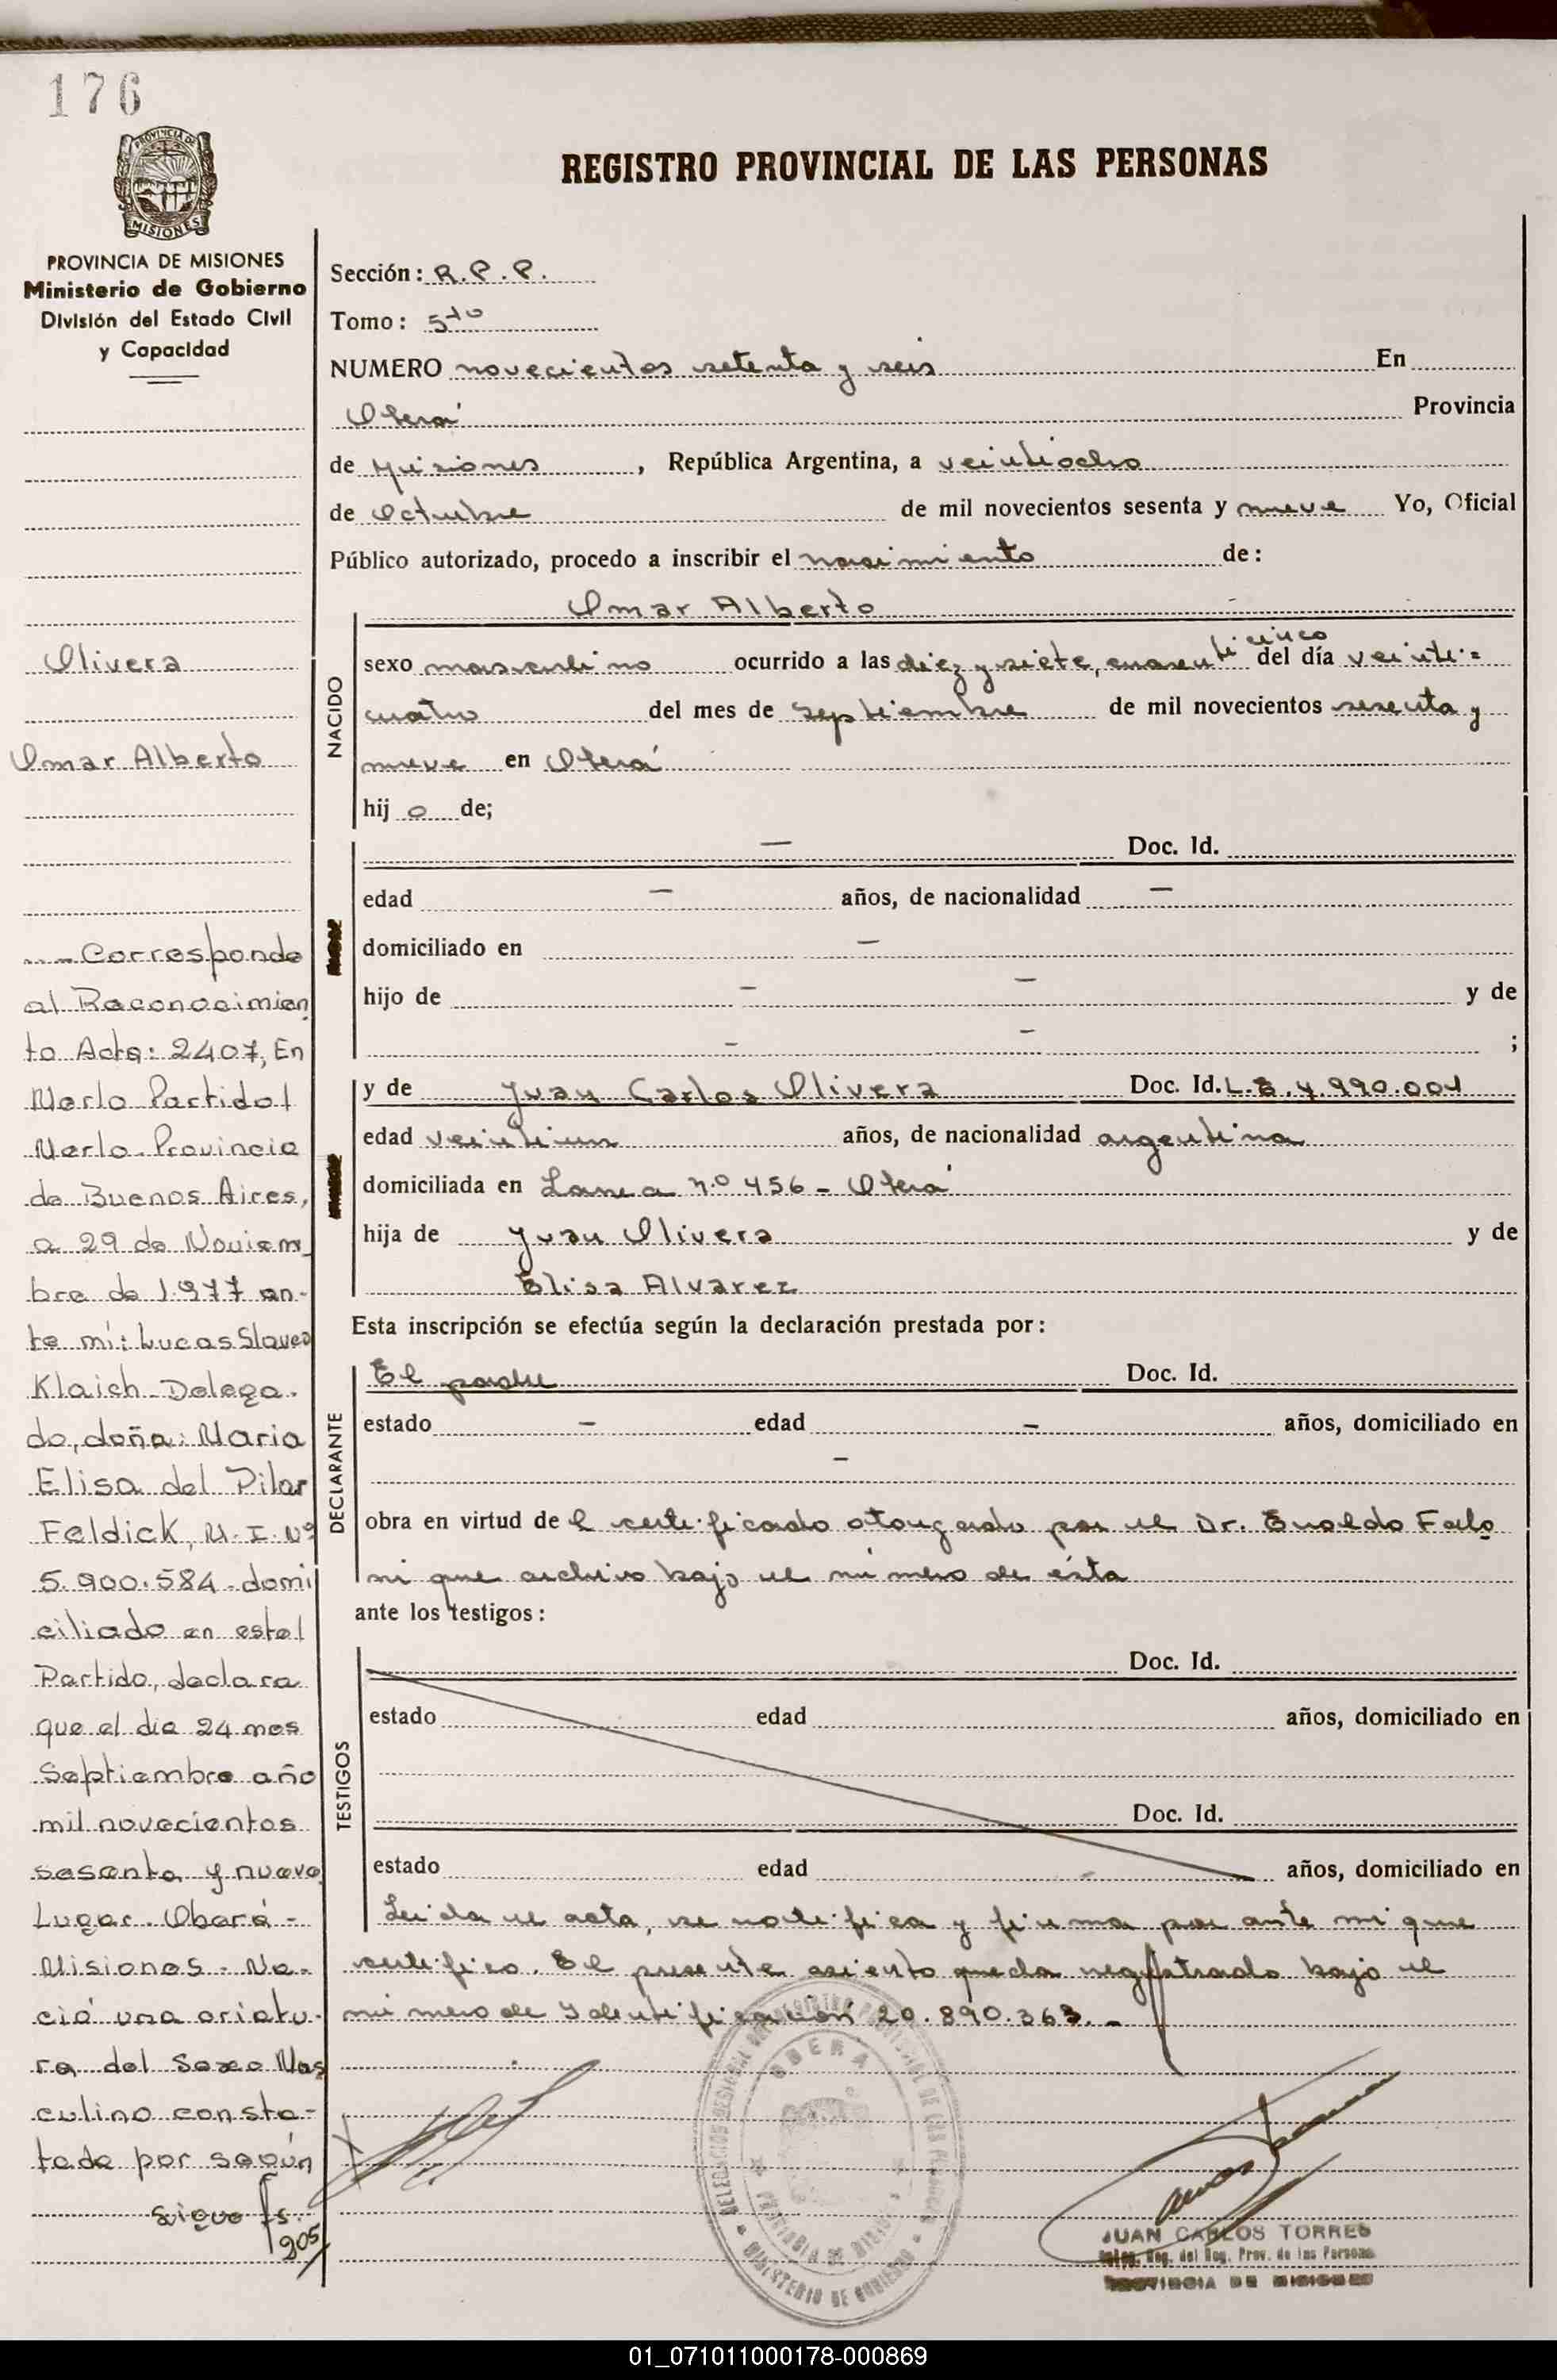 176
PROVINCIA DE
MISIONES
PROVINCIA DE MISIONES
Ministerio de Gobierno
División del Estado Civil
y Capacidad
Olivera
Omar Alberto
Corresponde
al Reconocimien
to Acta: 2407, En
Merlo Partido
Merlo Provincia
de Buenos Aires,
a 29 de Noviem
bre de 1.977 an-
te mí: Lucas Slavco
Klaich Delega-
do, doña: Maria
Elisa del Pilar
Feldick, M.I. Nº
5.900.584. domi
ciliado en este
Partido, declara
que el dia 24 mes
Septiembre año
mil novecientos
sesenta y nueve
Lugar. Oberá -
Misiones. Na-
ció una criatu-
ra del Sexo Mas
culino consta-
tada por según
sigue fs.
905/
REGISTRO PROVINCIAL DE LAS PERSONAS
Sección: R.P.P.
Tomo: 5to
NUMERO novecientos setenta y seis En
Oberá Provincia
de Misiones, República Argentina, a veintiocho
de Octubre de mil novecientos sesenta y nueve Yo, Oficial
Público autorizado, procedo a inscribir el nacimiento de:
NACIDO
Omar Alberto
sexo masculino ocurrido a las diez y siete, cuarenticinco del día veinti=
cuatro del mes de septiembre de mil novecientos sesenta y
nueve en Oberá
hijo de;
— Doc. Id.
edad — años, de nacionalidad —
domiciliado en —
hijo de — — y de
— — ;
y de Juan Carlos Olivera Doc. Id. L.E. 7.990.001
edad veintiun años, de nacionalidad argentina
domiciliada en n.º 456 - Oberá
hija de Juan Olivera y de
Elisa Alvarez
Esta inscripción se efectúa según la declaración prestada por:
DECLARANTE
El padre Doc. Id.
estado — edad — años, domiciliado en
—
obra en virtud de l certificado otorgado por el Dr. Evaldo
ni que archivo bajo el número de ésta
ante los testigos:
TESTIGOS
Doc. Id.
estado edad años, domiciliado en
Doc. Id.
estado edad años, domiciliado en
Leida el acta, se notifica y firma por ante mi que
certifico. El presente asiento queda registrado bajo el
número de Identificación 20.890.363. -
OBERA
PROVINCIA DE MISIONES
MINISTERIO DE GOBIERNO
JUAN CARLOS TORRES
Deleg. Reg. del Reg. Prov. de las Personas
PROVINCIA DE MISIONES
01_071011000178-000869